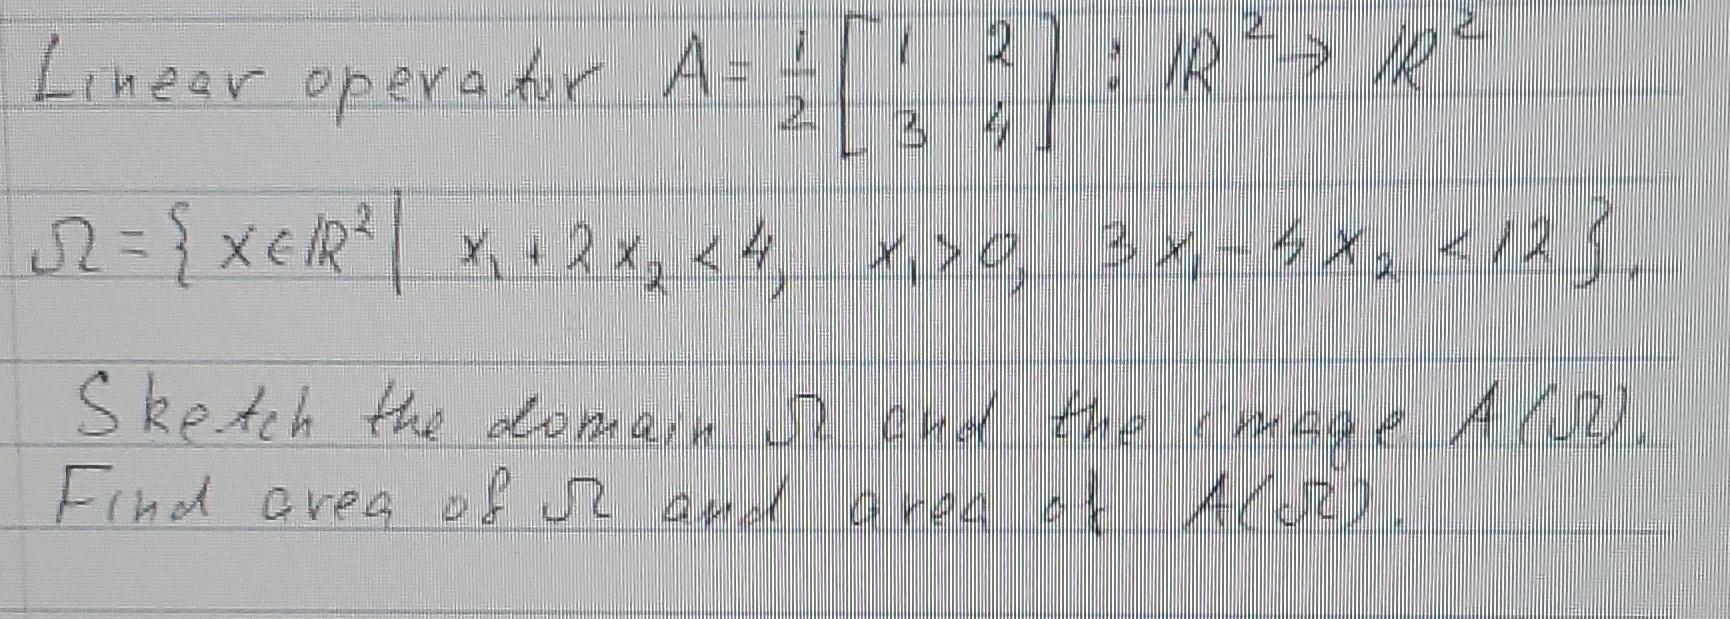 Linear operator A = 1/2 [1 2; 3 4] : ℝ² → ℝ²
Ω = { x ∈ ℝ² | x₁ + 2x₂ < 4, x₁ > 0, 3x₁ - 4x₂ < 12 }.
Sketch the domain Ω and the image A(Ω).
Find area of Ω and area of A(Ω).